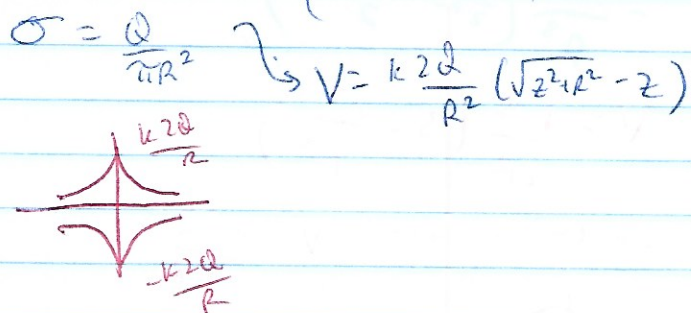 σ = Q/πR² → V = k2Q/R² (√z²+R² - z)
k2Q/R
-k2Q/R